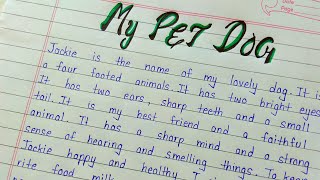 Date
Page
My PET DOG
Jackie is the name of my lovely dog. It is
a four footed animals. It has two bright eyes
It has two ears, sharp teeth and a small
tail. It is my best friend and a faithful
animal. It has a sharp mind and a strong
sense of hearing and smelling things. To keep
Jackie happy and healthy
rite food milk